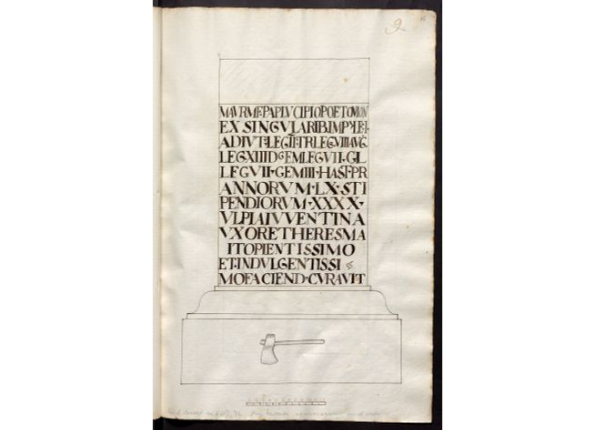 M AVR M F PAP LVCILIO POETOVION
EX SINGVLARIB IMP 7 LEG I
ADIVT·LEG II·TR LEG VIII AVG
LEG XIIII GEM LEG VII·CL
LEG VII·GEM III·HAST·PR
ANNORVM·LX·STI
PENDIORVM·XXXX·
VLPIA IVVENTINA
VXOR ET HERES MA
ITO PIENTISSIMO
ET·INDVLGENTISSI
MO FACIEND·CVRAVIT